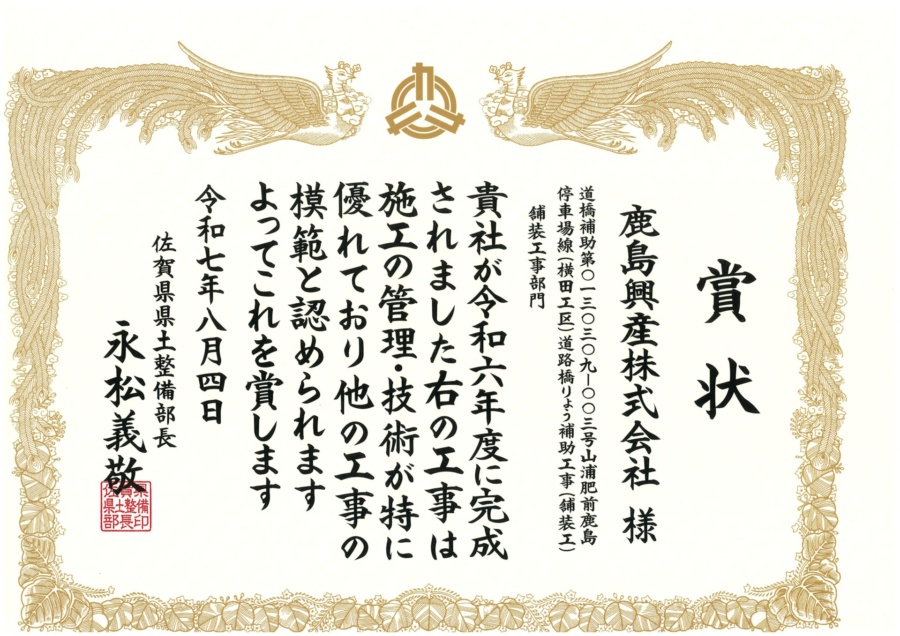 賞状
鹿島興産株式会社 様
道橋補助第〇一三〇三〇九ー〇〇三号山浦肥前鹿島
停車場線(横田工区)道路橋りょう補助工事(舗装工)
舗装工事部門
貴社が令和六年度に完成
されました右の工事は
施工の管理・技術が特に
優れており他の工事の
模範と認められます
よってこれを賞します
令和七年八月四日
佐賀県県土整備部長
永松義敬